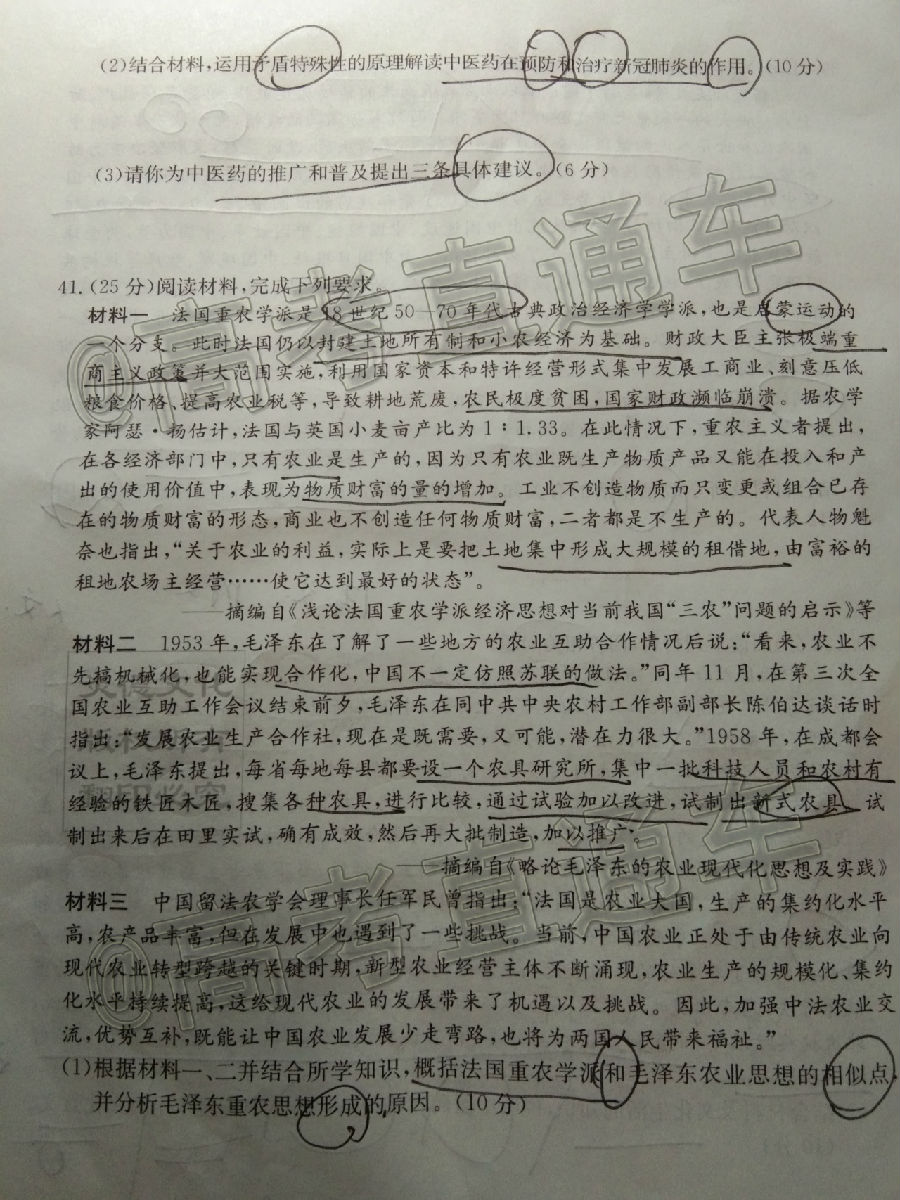 (2)结合材料,运用矛盾特殊性的原理解读中医药在预防和治疗新冠肺炎的作用。(10分)
(3)请你为中医药的推广和普及提出三条具体建议。(6分)
41.(25分)阅读材料,完成下列要求。
材料一 法国重农学派是18世纪50—70年代古典政治经济学学派,也是启蒙运动的
一个分支。此时法国仍以封建土地所有制和小农经济为基础。财政大臣主张极端重
商主义政策并大范围实施,利用国家资本和特许经营形式集中发展工商业、刻意压低
粮食价格、提高农业税等,导致耕地荒废,农民极度贫困,国家财政濒临崩溃。据农学
家阿瑟·扬估计,法国与英国小麦亩产比为1:1.33。在此情况下,重农主义者提出,
在各经济部门中,只有农业是生产的,因为只有农业既生产物质产品又能在投入和产
出的使用价值中,表现为物质财富的量的增加。工业不创造物质而只变更或组合已存
在的物质财富的形态,商业也不创造任何物质财富,二者都是不生产的。代表人物魁
奈也指出,“关于农业的利益,实际上是要把土地集中形成大规模的租借地,由富裕的
租地农场主经营……使它达到最好的状态”。
——摘编自《浅论法国重农学派经济思想对当前我国“三农”问题的启示》等
材料二 1953年,毛泽东在了解了一些地方的农业互助合作情况后说:“看来,农业不
先搞机械化,也能实现合作化,中国不一定仿照苏联的做法。”同年11月,在第三次全
国农业互助工作会议结束前夕,毛泽东在同中共中央农村工作部副部长陈伯达谈话时
指出:“发展农业生产合作社,现在是既需要,又可能,潜在力很大。”1958年,在成都会
议上,毛泽东提出,每省每地每县都要设一个农具研究所,集中一批科技人员和农村有
经验的铁匠木匠,搜集各种农具,进行比较,通过试验加以改进,试制出新式农具。试
制出来后在田里实试,确有成效,然后再大批制造,加以推广。
——摘编自《略论毛泽东的农业现代化思想及实践》
材料三 中国留法农学会理事长任军民曾指出:“法国是农业大国,生产的集约化水平
高,农产品丰富,但在发展中也遇到了一些挑战。当前,中国农业正处于由传统农业向
现代农业转型跨越的关键时期,新型农业经营主体不断涌现,农业生产的规模化、集约
化水平持续提高,这给现代农业的发展带来了机遇以及挑战。因此,加强中法农业交
流,优势互补,既能让中国农业发展少走弯路,也将为两国人民带来福祉。”
(1)根据材料一、二并结合所学知识,概括法国重农学派和毛泽东农业思想的相似点,
并分析毛泽东重农思想形成的原因。(10分)
@高考直通车
@高考直通车
翻印必究